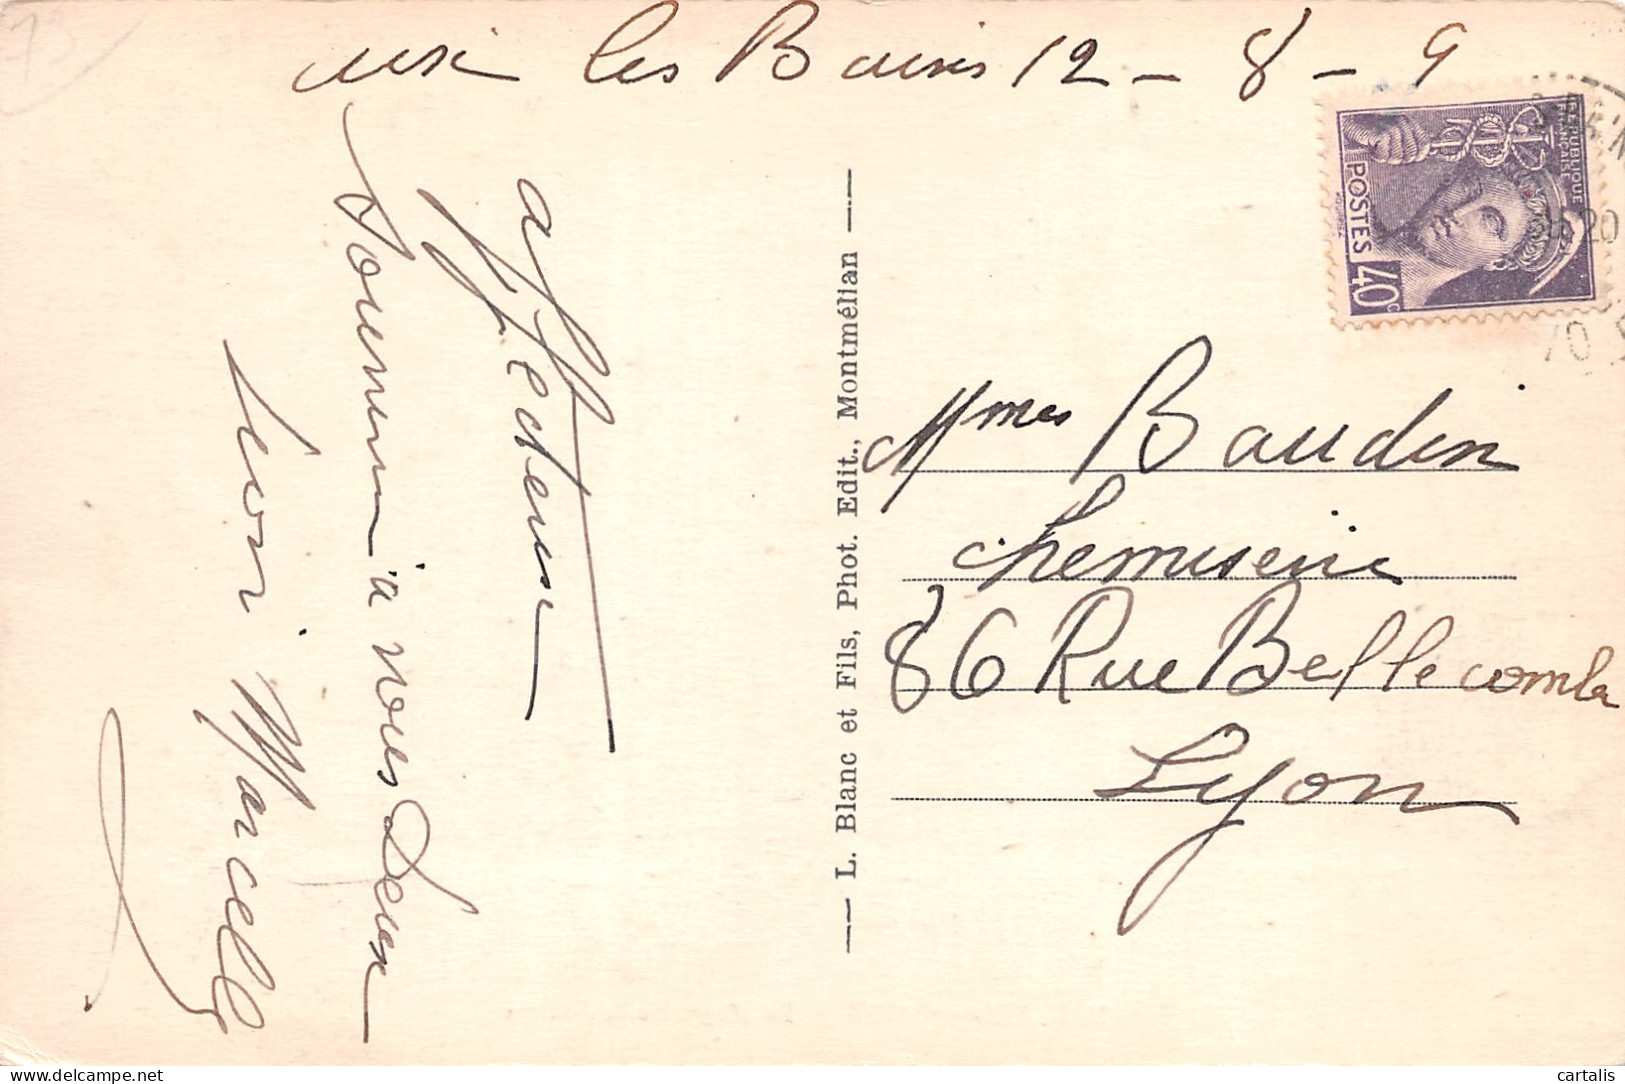 les Bains 12 - 8 - 9
affectueux
Souvenir à vous Deux
Léon Marcelle
L. Blanc et Fils, Phot. Edit., Montmélian
REPUBLIQUE
FRANÇAISE
POSTES
40c
Mmes Baudin
Chemiserie
86 Rue Bellecombe
Lyon
cartalis